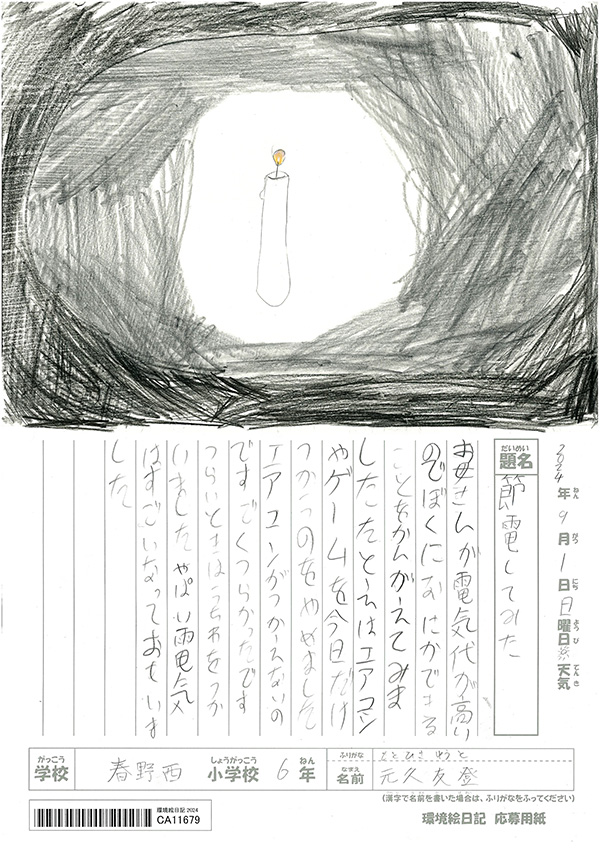 2024年ねん9月がつ1日にち日曜日ようび天気てんき
題名だいめい 節電してみた
お母さんが電気代が高い
のでぼくになにかできる
ことをかんがえてみま
したたとえはエアコン
やゲームを今日だけ
つかうのをやめました
エアコンがつかえないの
ですごくつらかったです
つらいときはうちわをつか
いました やぱい電気
はすごいなっておもいま
した
がっこう しょうがっこう ねん
学校 春野西 小学校 6年
ふりがな ひさ ゆうと
なまえ
名前 元久友登
(漢字で名前を書いた場合は、ふりがなをふってください)
環境絵日記 応募用紙
環境絵日記 2024
CA11679